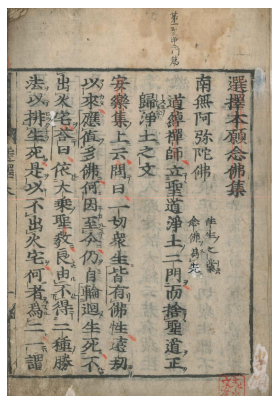 選擇本願念佛集
南無阿弥陀佛
往生之業
念佛為先
道綽禪師立聖道淨土二門而捨聖道正
歸淨土之文
安樂集上云問曰一切衆生皆有佛性遠劫
以來應值多佛何因至今仍自輪迴生死不
出火宅荅曰依大乘聖教良由不得二種勝
法以排生死是以不出火宅何者為二一謂